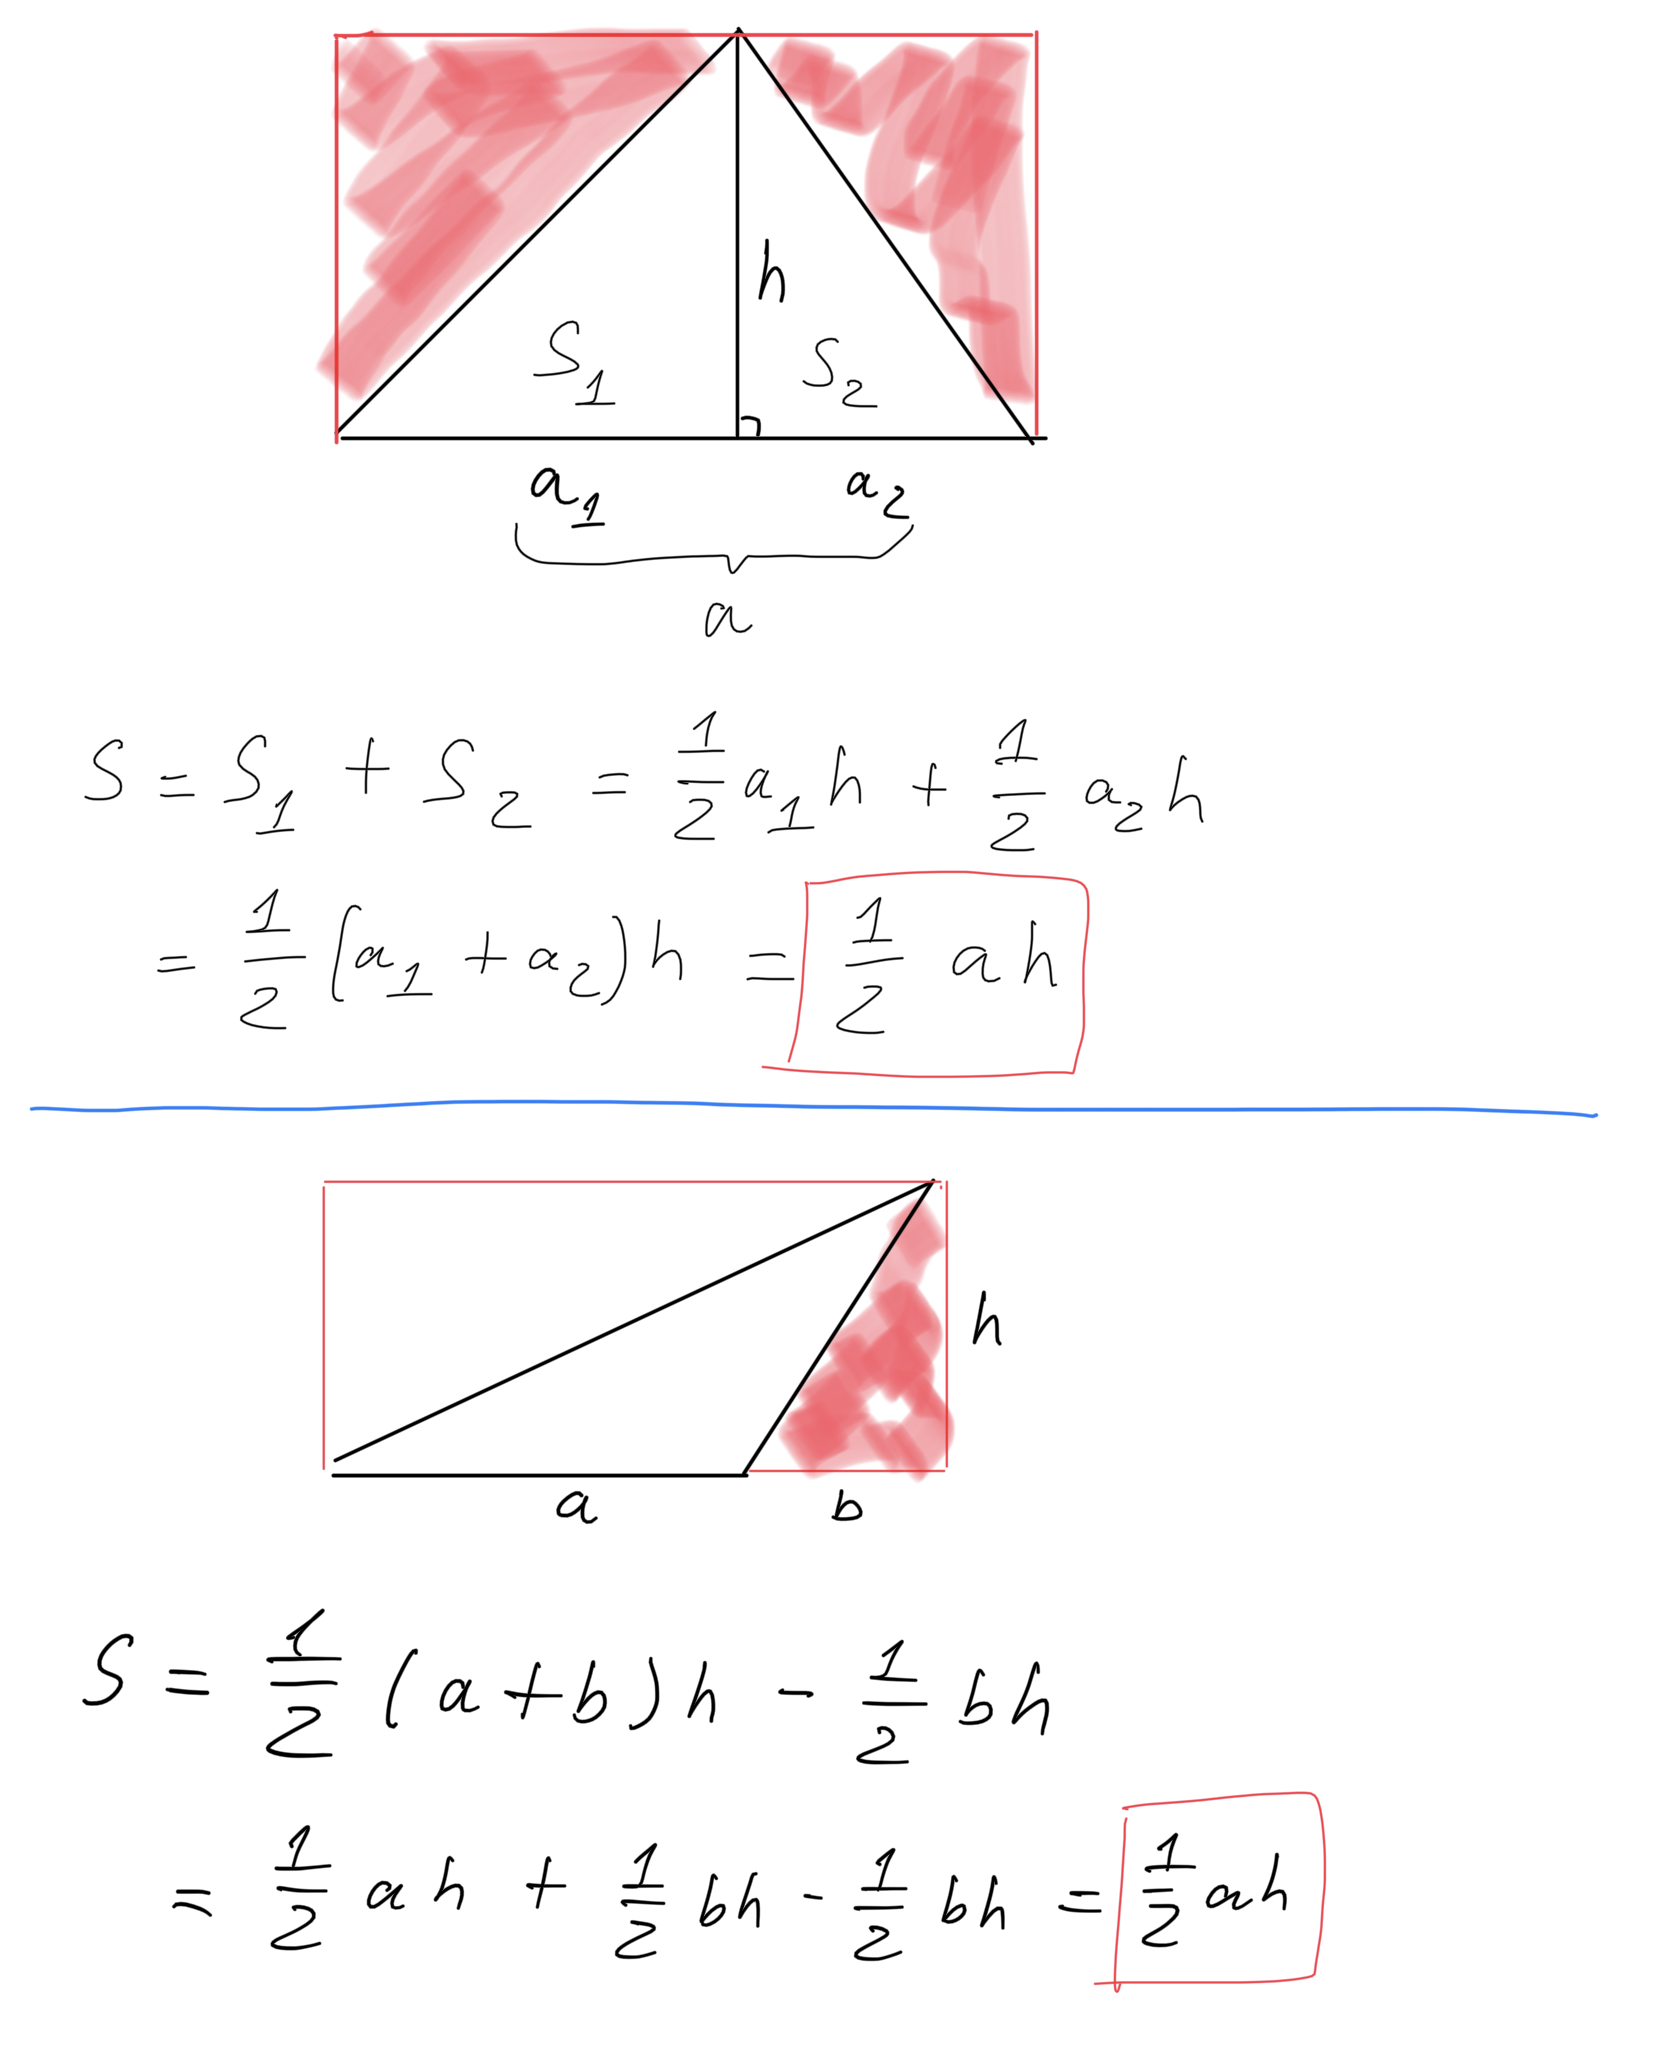 h
S₁ S₂
a₁ a₂
a
S = S₁ + S₂ = 1/2 a₁h + 1/2 a₂h
= 1/2 (a₁ + a₂)h = 1/2 ah
h
a b
S = 1/2 (a+b)h - 1/2 bh
= 1/2 ah + 1/2 bh - 1/2 bh = 1/2 ah